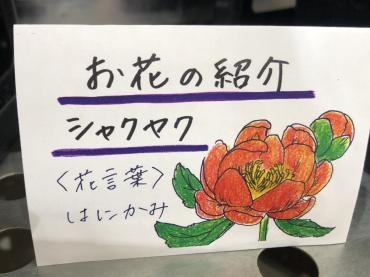 お花の紹介
シャクヤク
〈花言葉〉
はにかみ